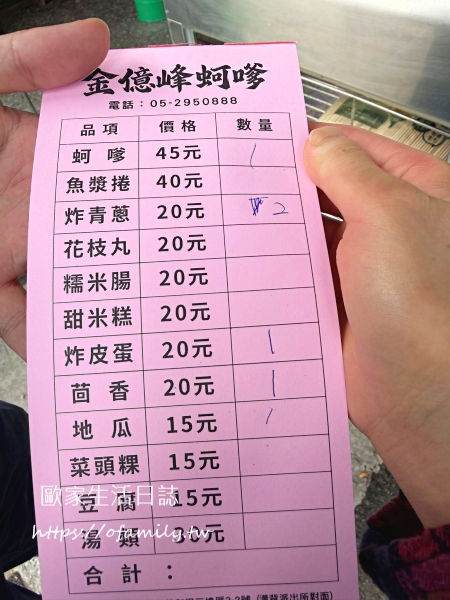 金億峰蚵嗲
電話：05-2950888
品項 價格 數量
蚵嗲 45元 1
魚漿捲 40元
炸青蔥 20元 2
花枝丸 20元
糯米腸 20元
甜米糕 20元
炸皮蛋 20元 1
茴香 20元 1
地瓜 15元 1
菜頭粿 15元
豆腐 15元
湯類 30元
合計：
歐家生活日誌
https://ofamily.tw
2-3號 (溝背派出所對面)